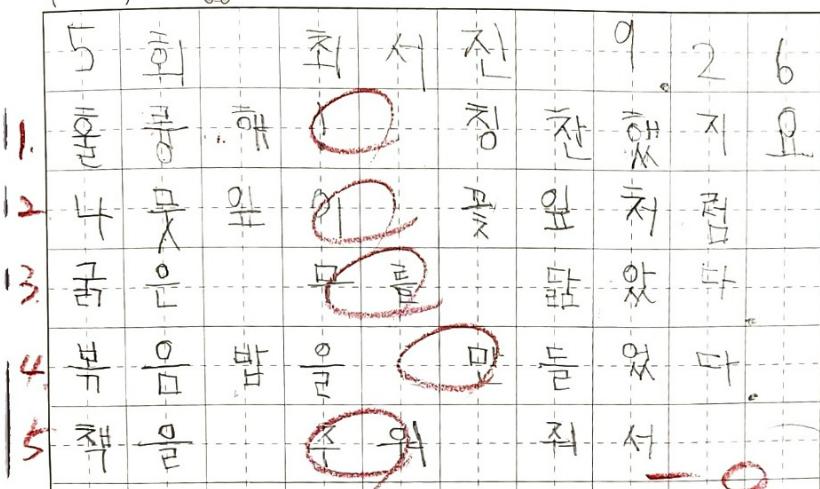 5회 최서진 9.26
11. 훌륭해 칭찬했지요
12 나뭇잎이 꽃잎처럼
13. 굵은 무를 닮았다.
14. 볶음밥을 만들었다.
15 책을 주워 줘서